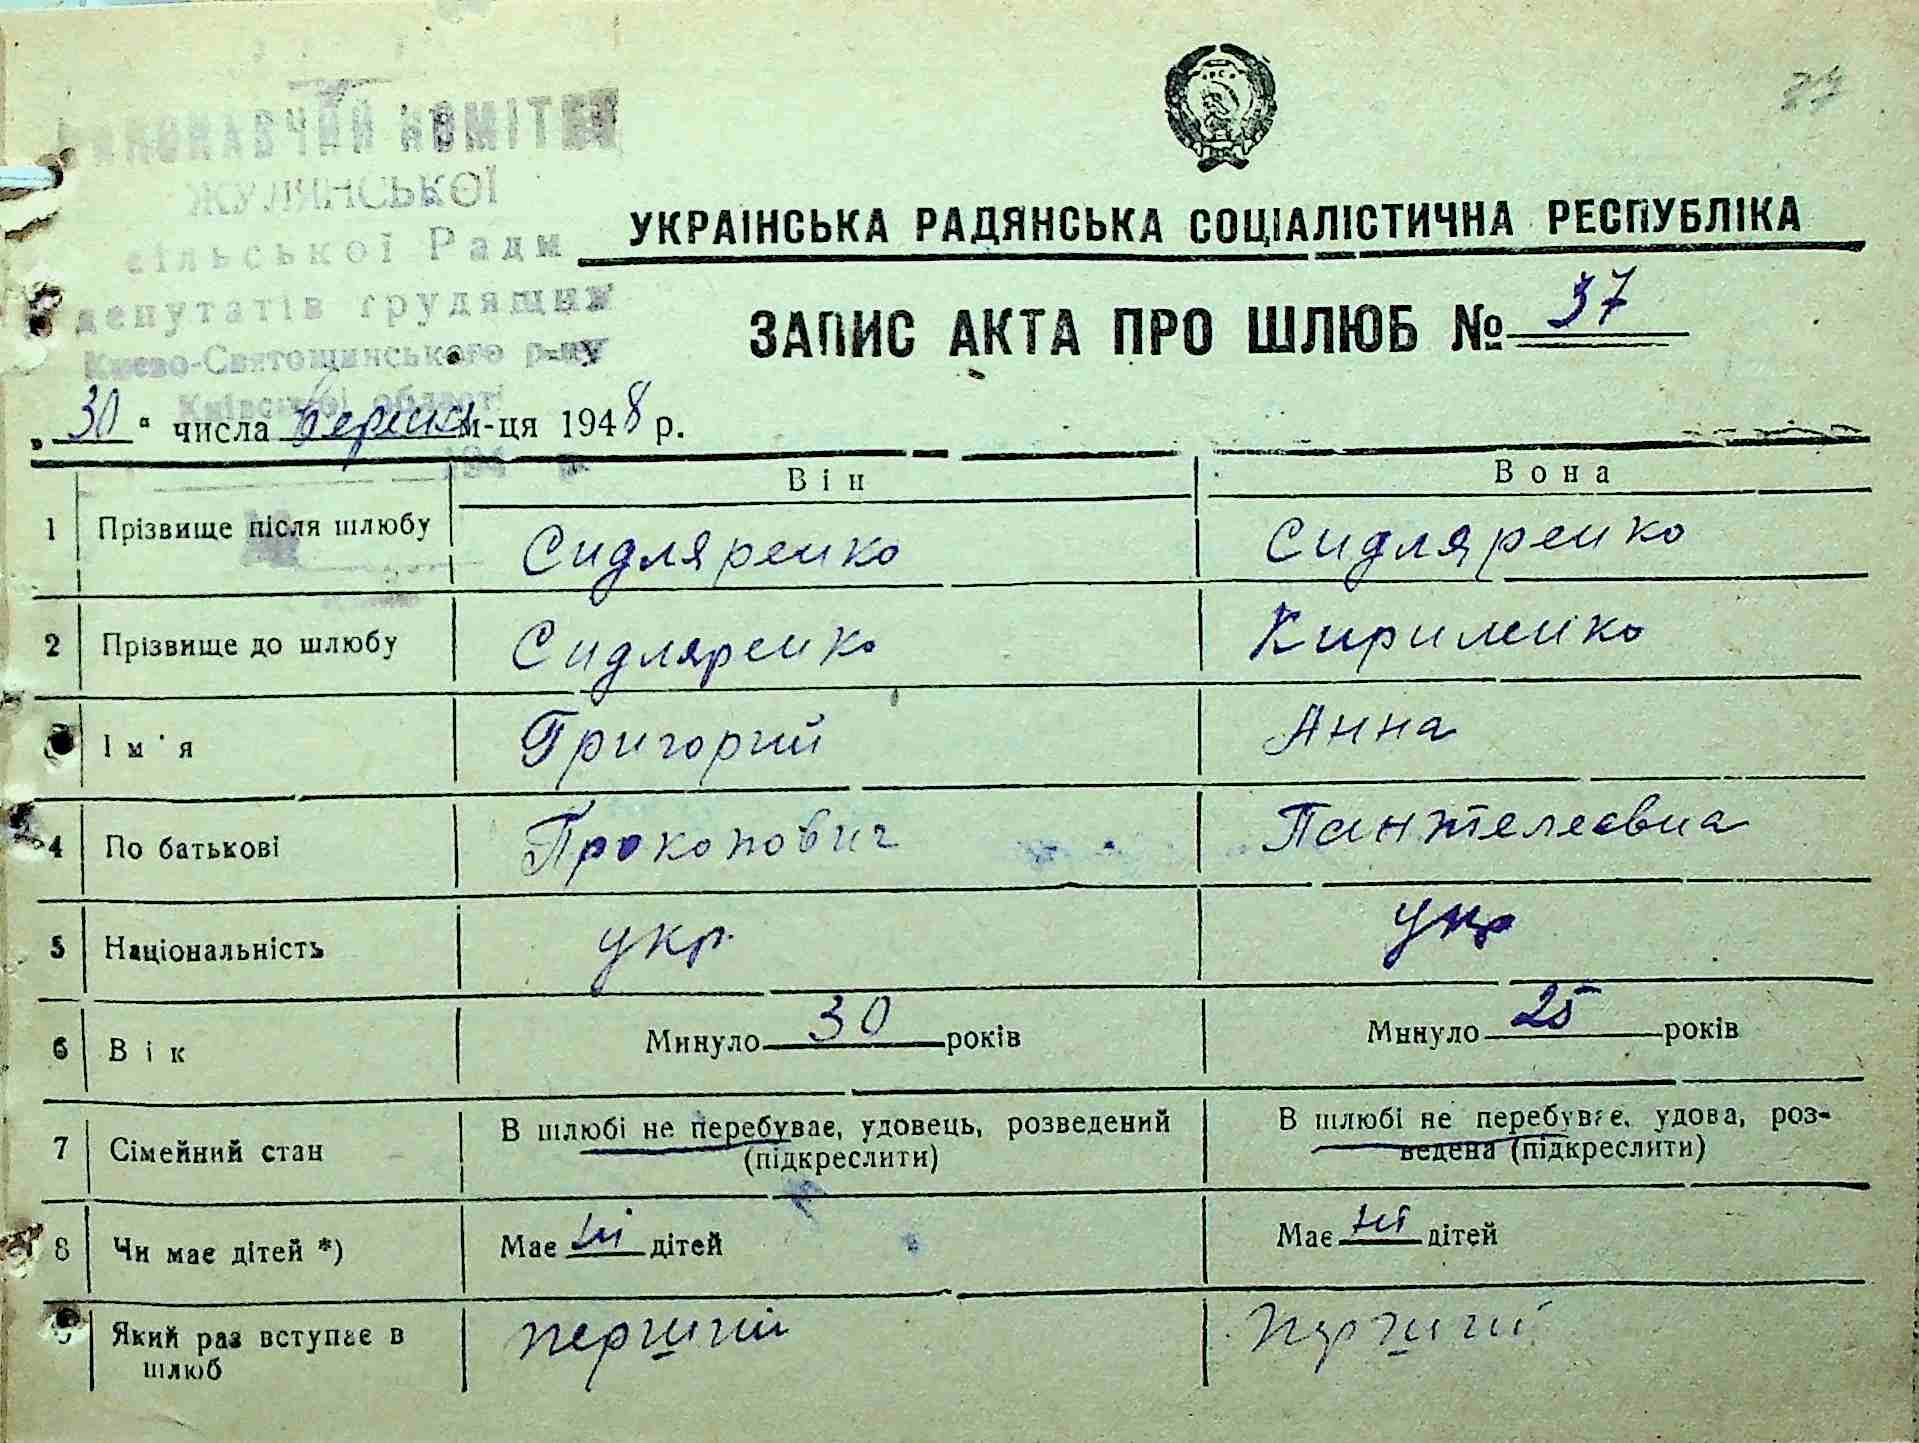 29
ВИКОНАВЧИЙ КОМІТЕТ
ЖУЛЯНСЬКОЇ
сільської Ради
депутатів трудящих
Києво-Святошинського р-ну
Київської області
194 р.
УКРАЇНСЬКА РАДЯНСЬКА СОЦІАЛІСТИЧНА РЕСПУБЛІКА
ЗАПИС АКТА ПРО ШЛЮБ № 37
„30“ числа вересня м-ця 1948 р.
Він Вона
1 Прізвище після шлюбу Сидляренко Сидляренко
2 Прізвище до шлюбу Сидляренко Кириленко
Ім'я Григорий Анна
4 По батькові Прокопович Пантелеєвна
5 Національність укр. укр
6 Вік Минуло 30 років Минуло 25 років
7 Сімейний стан В шлюбі не перебуває, удовець, розведений В шлюбі не перебуває, удова, роз-
(підкреслити) ведена (підкреслити)
8 Чи має дітей *) Має ні дітей Має ні дітей
9 Який раз вступає в перший перший
шлюб